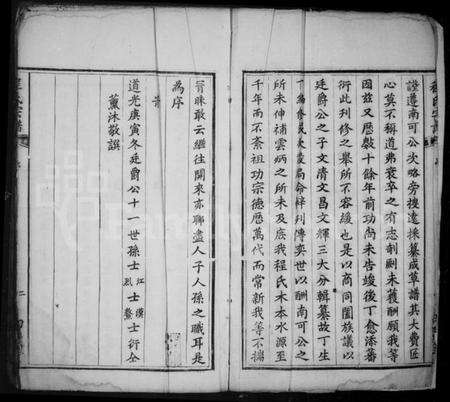 程氏宗譜
證邁南可公次略旁搜遠採纂成草譜其大費匠
心莫不稱道弗衰卒之有志制劂未獲酬願我等
因茲又歷數十餘年前功尚未告竣後丁愈添蕃
衍此刊修之舉所不容緩也是以商同闔族議以
廷爵公之子文清文昌文輝三大分輯纂故丁生
命梓列傳奕世以酬南可公之
所未伸補雲炳之所未及庶我程氏木本水源至
千年而不紊祖功宗德歷萬代而常新我等不揣
冒昧敢云繼往開來亦聊盡人子人孫之職耳是
為序
時
道光庚寅冬廷爵公十一世孫士江漢烈士鰲士衍仝
薰沐敬譔
程氏宗譜